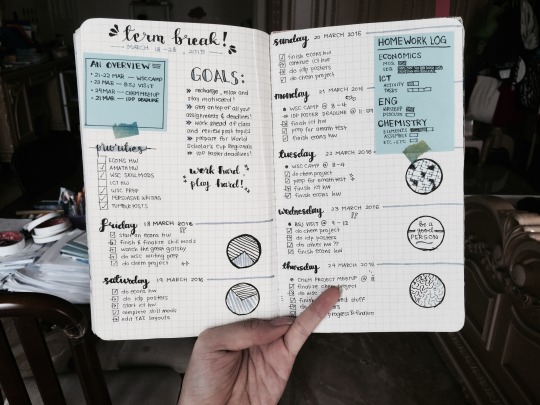 term break!
MARCH 18 - 28, 2015
AN OVERVIEW
• 21-22 MAR → WSC CAMP
• 23 MAR → BSJ VISIT
• 24 MAR → CHEM MEETUP
• 21 MAR → IDP DEADLINE
priorities
ECONS HW
AMATH HW
WSC SKILLS MODS
ICT HW
WSC PREP
PERSUASIVE WRITING
TUMBLR ASKS
GOALS:
» recharge, relax and
stay motivated!
» stay on top of all your
assignments & deadlines!
» work ahead of class
and revise past topics
» prepare for World
Scholar's Cup Regionals
» IDP poster deadlines!
work hard,
play hard!
friday 18 MARCH 2016
start on econs hw
finish & finalize skill mods
watch the great gatsby
do WSC writing prep
do chem project
saturday 19 MARCH 2016
do econs hw
do idp posters
start ict hw
complete skill mods
edit layouts
sunday 20 MARCH 2016
finish econs hw
continue ict hw
do idp posters
do chem project
monday 21 MARCH 2016
• WSC CAMP @ 8-4
• IDP POSTER DEADLINE @ 11
finish ict hw
prep for amath test
finish econs hw
tuesday 22 MARCH 2016
• WSC CAMP @ 8-4
do chem project
prep for amath test
finish ict hw
finish econs hw
wednesday 23 MARCH 2016
• BSJ VISIT @ 9-12
do chem project
do idp posters
do other hw
finish econs hw
thursday 24 MARCH 2016
• CHEM PROJECT MEETUP @
finalize chem project
do wsc
finish stuff
do idp posters
progress & finalize
HOMEWORK LOG
ECONOMICS
MCQ
ICT
ACTIVITY
TASKS
ENG
WRITEUP
CHEMISTRY
be a
good
PERSON